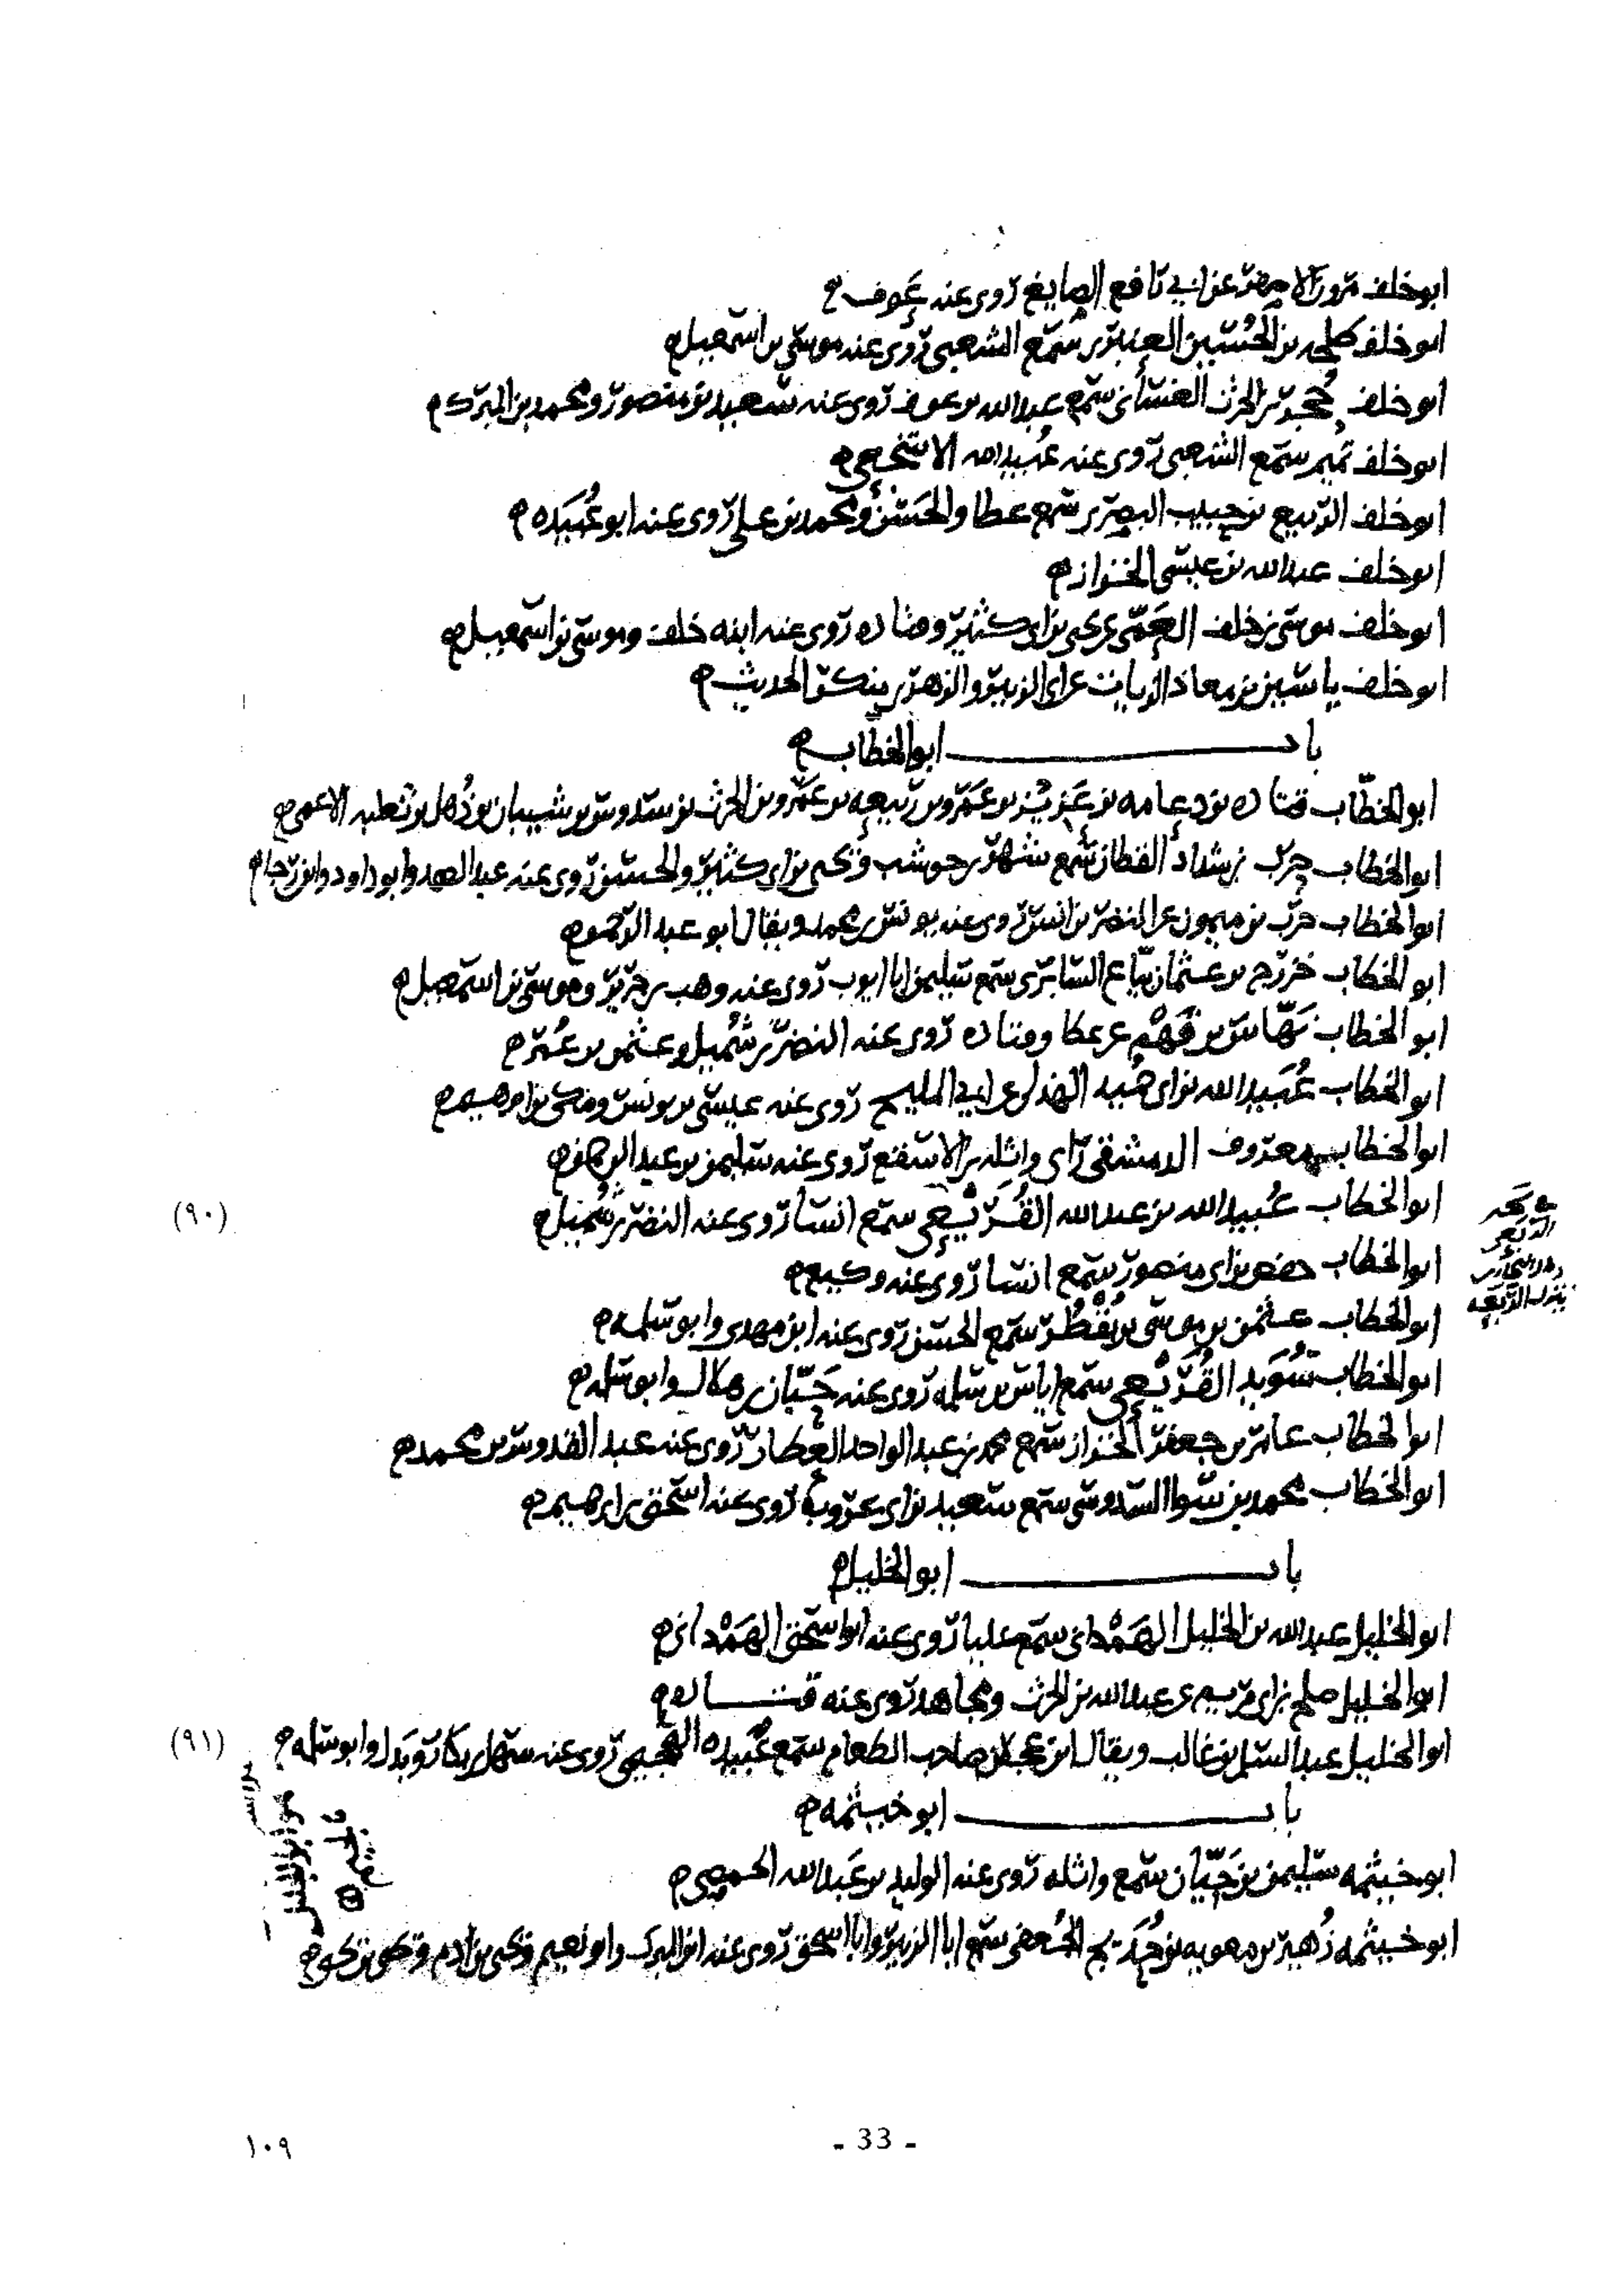 ابو خلف مرون الاصفر عن ابي رافع الصايغ روى عنه عوف
ابو خلف كليب بن الحسين العنبري سمع الشعبي روى عنه موسى بن اسمعيل
ابو خلف حجر بن الحرث الغساني سمع عبد الله بن عوف روى عنه سعيد بن منصور ومحمد بن المبرك
ابو خلف تميم سمع الشعبي روى عنه عبيد الله الاشجعي
ابو خلف الربيع بن حبيب البصري سمع عطا والحسن ومحمد بن علي روى عنه ابو عبيده
ابو خلف عبد الله بن عيسى الخزاز
ابو خلف موسى بن خلف العمي عن يحيى بن ابي كثير وقتاده روى عنه ابنه خلف وموسى بن اسمعيل
ابو خلف ياسين بن معاذ الزيات عن ابي الزبير والزهري منكر الحديث
باب ابو الخطاب
ابو الخطاب قتاده بن دعامه بن عزيز بن عمرو بن ربيعه بن عمرو بن الحرث بن سدوس بن شيبان بن ذهل بن ثعلبه الاعمى
ابو الخطاب حرب بن شداد القطان سمع شهر بن حوشب ويحيى بن ابي كثير والحسن روى عنه عبد الصمد وابو داود وابن رجا
ابو الخطاب حرب بن ميمون عن النضر بن انس روى عنه يونس بن محمد ويقال ابو عبد الرحمن
ابو الخطاب خزرج بن عثمان بياع السابري سمع سليمن ابا ايوب روى عنه وهب بن جرير وموسى بن اسمعيل
ابو الخطاب نهاس بن قهم عن عطا وقتاده روى عنه النضر بن شميل وعثمن بن عمر
ابو الخطاب عبيد الله بن ابي حميد الهذلي عن ابي المليح روى عنه عيسى بن يونس ومكي بن ابرهيم
ابو الخطاب معروف الدمشقي راى واثله بن الاسقع روى عنه سليمن بن عبد الرحمن
ابو الخطاب عبيد الله بن عبد الله القريعي سمع انسا روى عنه النضر بن شميل
(٩٠)
ابو الخطاب حفص بن ابي منصور سمع انسا روى عنه وكيع
ابو الخطاب عثمن بن موسى بن بقطر سمع الحسن روى عنه ابن مهدي وابو سلمه
ابو الخطاب سويد القريعي سمع اياس بن سلمه روى عنه حبان بن هلال وابو سلمه
ابو الخطاب عامر بن جعفر الخزاز سمع محمد بن عبد الواحد العطار روى عنه عبد القدوس بن محمد
ابو الخطاب محمد بن سوا السدوسي سمع سعيد بن ابي عروبه روى عنه اسحق بن ابرهيم
باب ابو الخليل
ابو الخليل عبد الله بن الخليل الهمداني سمع عليا روى عنه ابو اسحق الهمداني
ابو الخليل صلح بن ابي مريم عن عبد الله بن الحرث ومجاهد روى عنه قتاده
ابو الخليل عبد السلم بن غالب ويقال ابن عجلان صاحب الطعام سمع عبيده الهجيمي روى عنه سهل بن بكار وبدل وابو سلمه
(٩١)
باب ابو خيثمه
ابو خيثمه سليمن بن حيان سمع واثله روى عنه الوليد بن عبد الله الحمصي
ابو خيثمه زهير بن معويه بن حديج الجعفي سمع ابا الزبير وابا اسحق روى عنه ابن المبرك وابو نعيم ويحيى بن ادم ويحيى بن يحيى
- 33 -
١٠٩